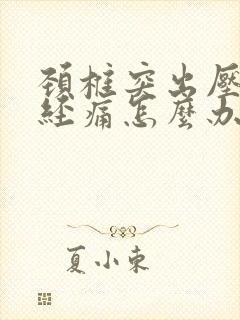 頚椎突出壓
経痛怎麼办
夏小東